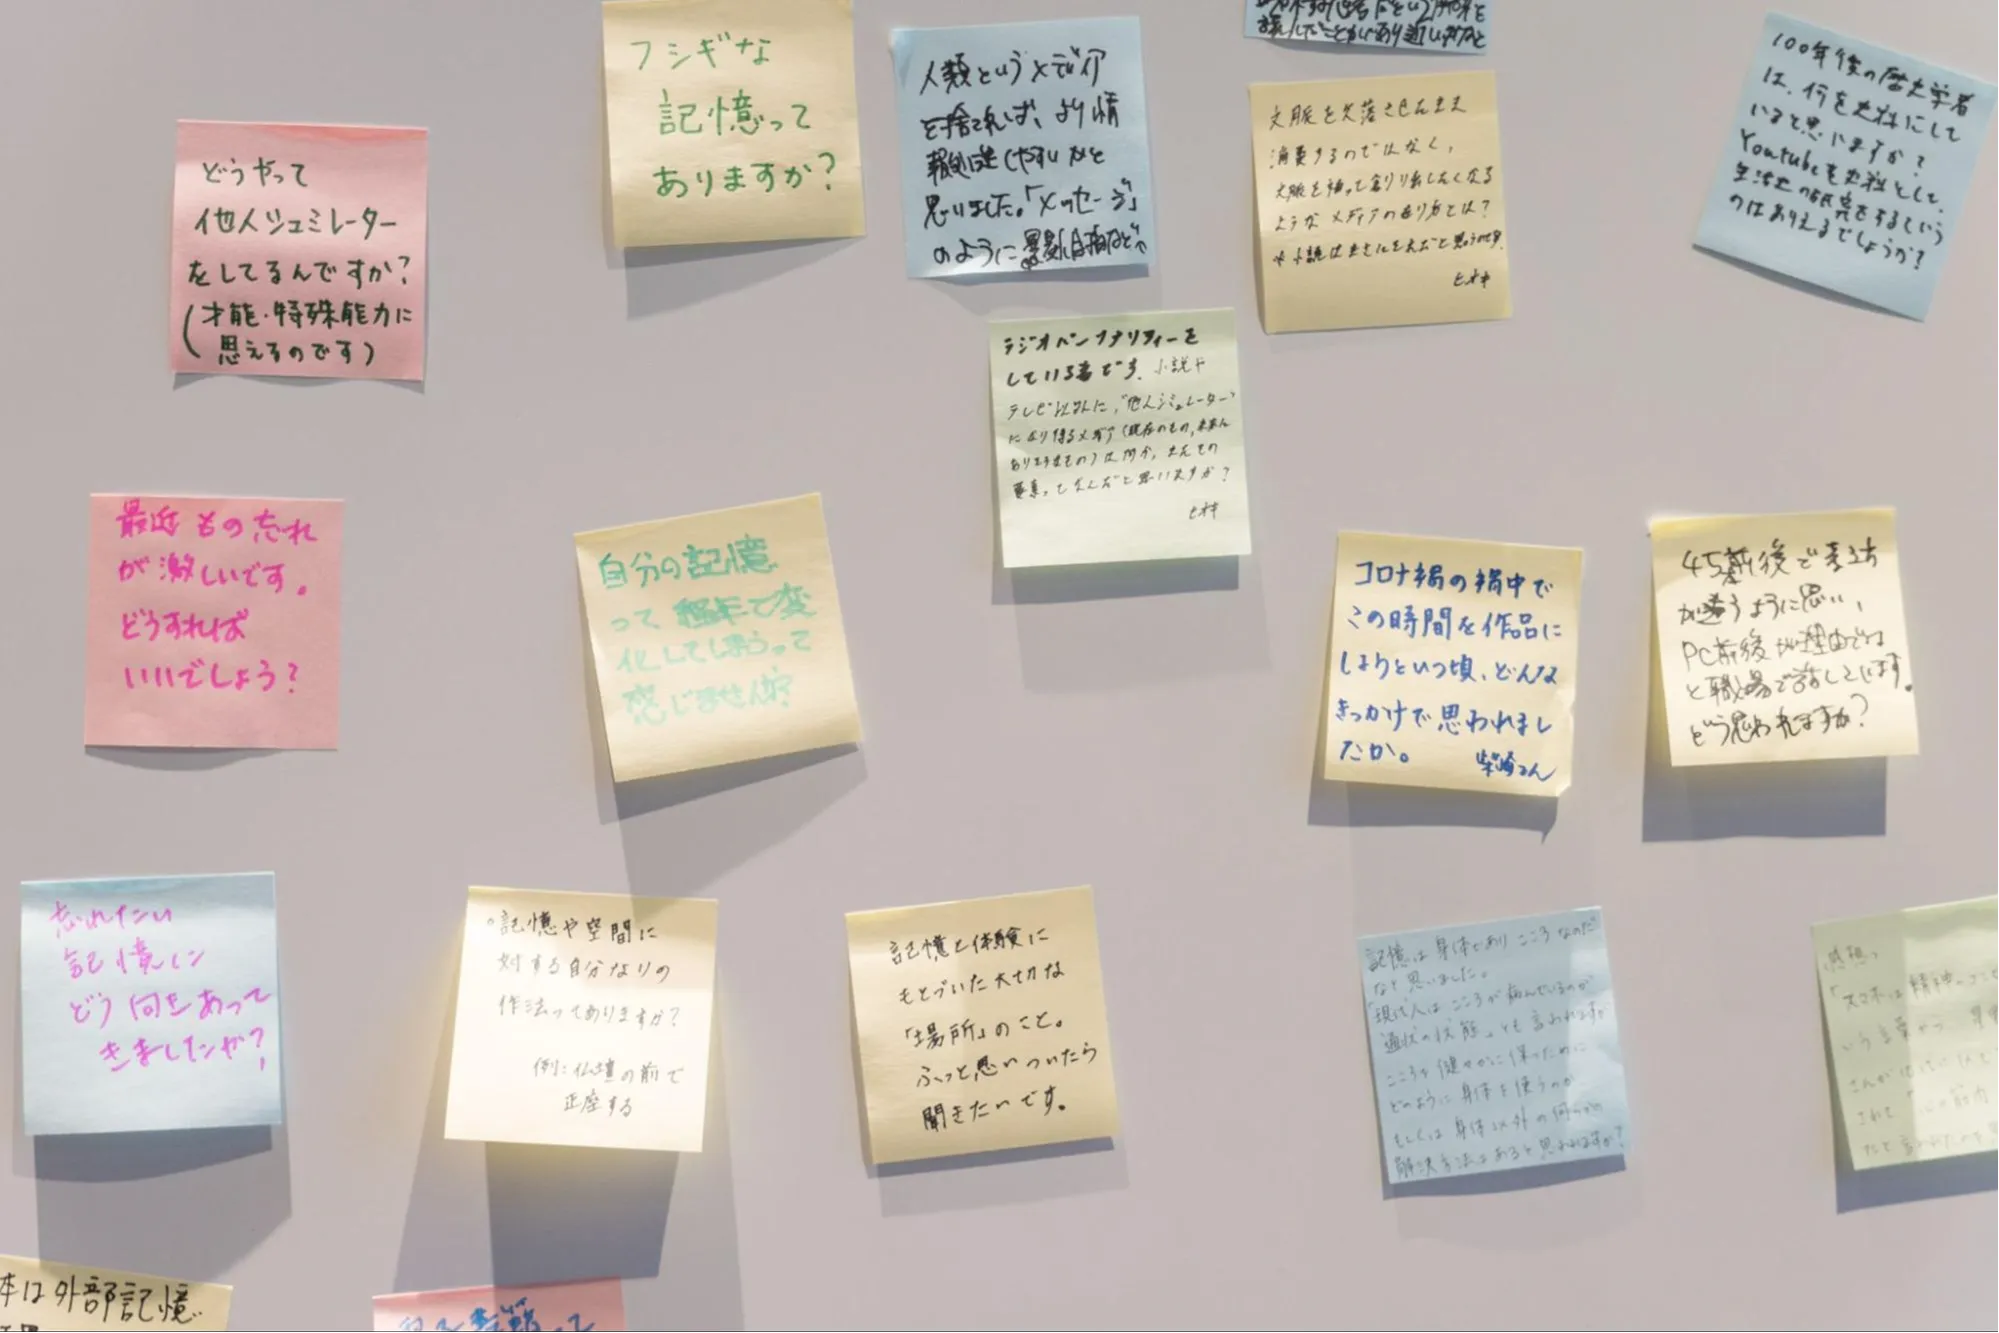 どうやって
他人シュミレーター
をしてるんですか?
(才能・特殊能力に
思えるのです)
フシギな
記憶って
ありますか?
人類というメディア
を捨てれば、より情
報処理しやすいかと
思いました。「メッセージ」
のように
文脈を欠落させたまま
消費するのではなく、
文脈を補って創り出したくなる
ようなメディアの在り方とは?
ヒオキ
100年後の歴史学者
は、何を史料にして
いると思いますか?
Youtubeを史料として、
生活史の研究をするという
のはありえるでしょうか?
ラジオパーソナリティーを
している者です。小説や
テレビ以外に、「他人シミュレーター」
になり得るメディア(既存のもの、未来に
ありそうなもの)は何か、またその
要素ってなんだと思いますか?
ヒオキ
最近もの忘れ
が激しいです。
どうすれば
いいでしょう?
自分の記憶
って経年で変
化してしまうって
感じませんか?
コロナ禍の禍中で
この時間を作品に
しようといつ頃、どんな
きっかけで思われまし
たか。 柴崎さん
45前後で考え方
が違うように思い、
PC前後が理由では
と職場で話しています。
どう思われますか?
忘れたい
記憶に
どう向きあって
きましたか?
記憶や空間に
対する自分なりの
作法ってありますか?
例:仏壇の前で
正座する
記憶と体験に
もとづいた大切な
「場所」のこと。
ふっと思いついたら
聞きたいです。
記憶は身体でありこころなのだ
なと思いました。
「現代人はこころが病んでいるのが
通状の状態」とも言われますが
こころを健やかに保つために
どのように身体を使うのか
もしくは身体以外の何らかの
解決方法はあると思われますか?
感想
「スマホは精神の
いう言葉から
本は外部記憶